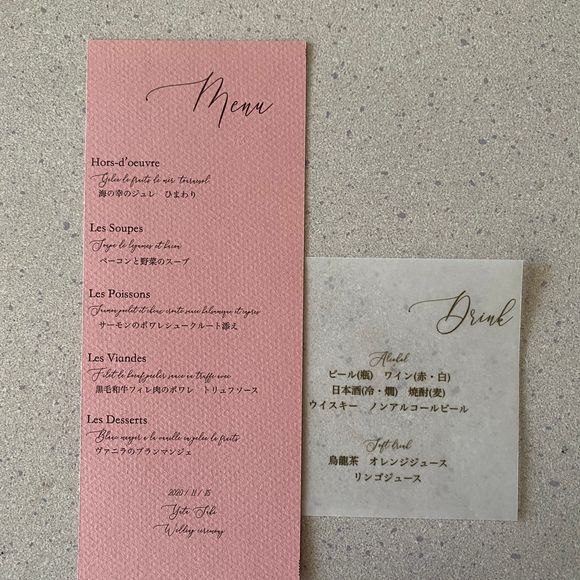 Menu
Hors-d'oeuvre
Gelée de fruits de mer tournesol
海の幸のジュレ ひまわり
Les Soupes
Soupe de legumes et bacon
ベーコンと野菜のスープ
Les Poissons
サーモンのポワレシュークルート添え
Les Viandes
黒毛和牛フィレ肉のポワレ トリュフソース
Les Desserts
ヴァニラのブランマンジェ
2020 / 11 / 15
Wedding ceremony
Drink
Alcohol
ビール(瓶) ワイン(赤・白)
日本酒(冷・燗) 焼酎(麦)
ウイスキー ノンアルコールビール
Soft drink
烏龍茶 オレンジジュース
リンゴジュース